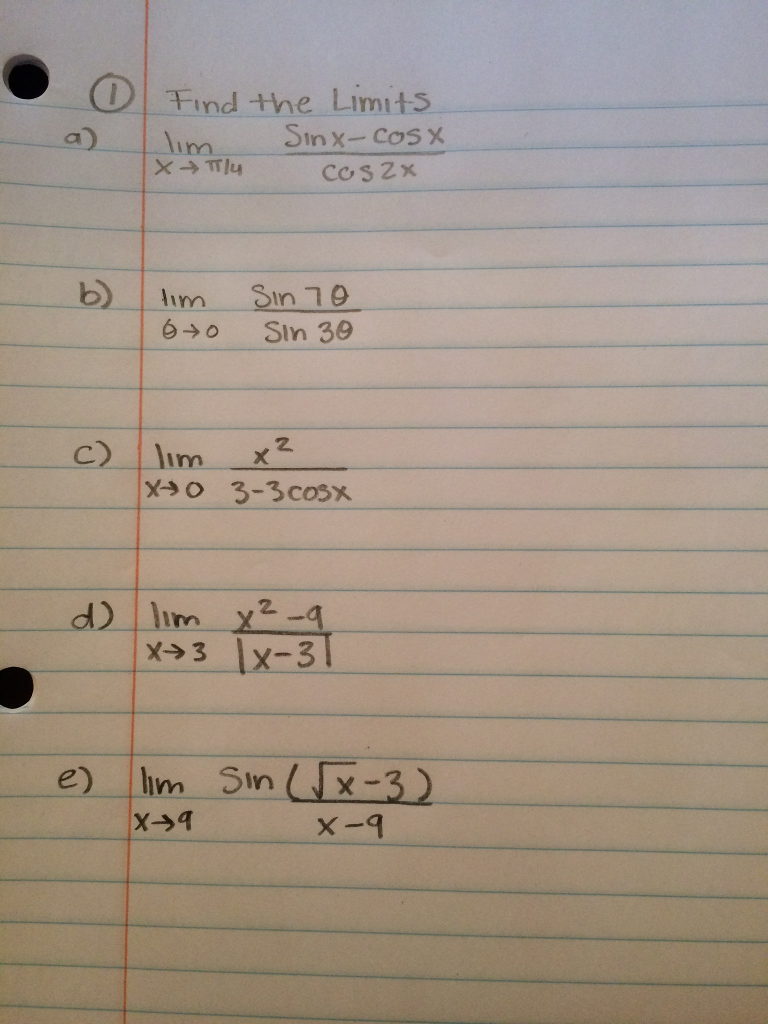 ① Find the Limits
a) lim x→π/4 (sinx-cosx)/(cos2x)
b) lim θ→0 (Sin 7θ)/(Sin 3θ)
c) lim x→0 (x²)/(3-3cosx)
d) lim x→3 (x²-9)/|x-3|
e) lim x→9 Sin (√x-3)/(x-9)